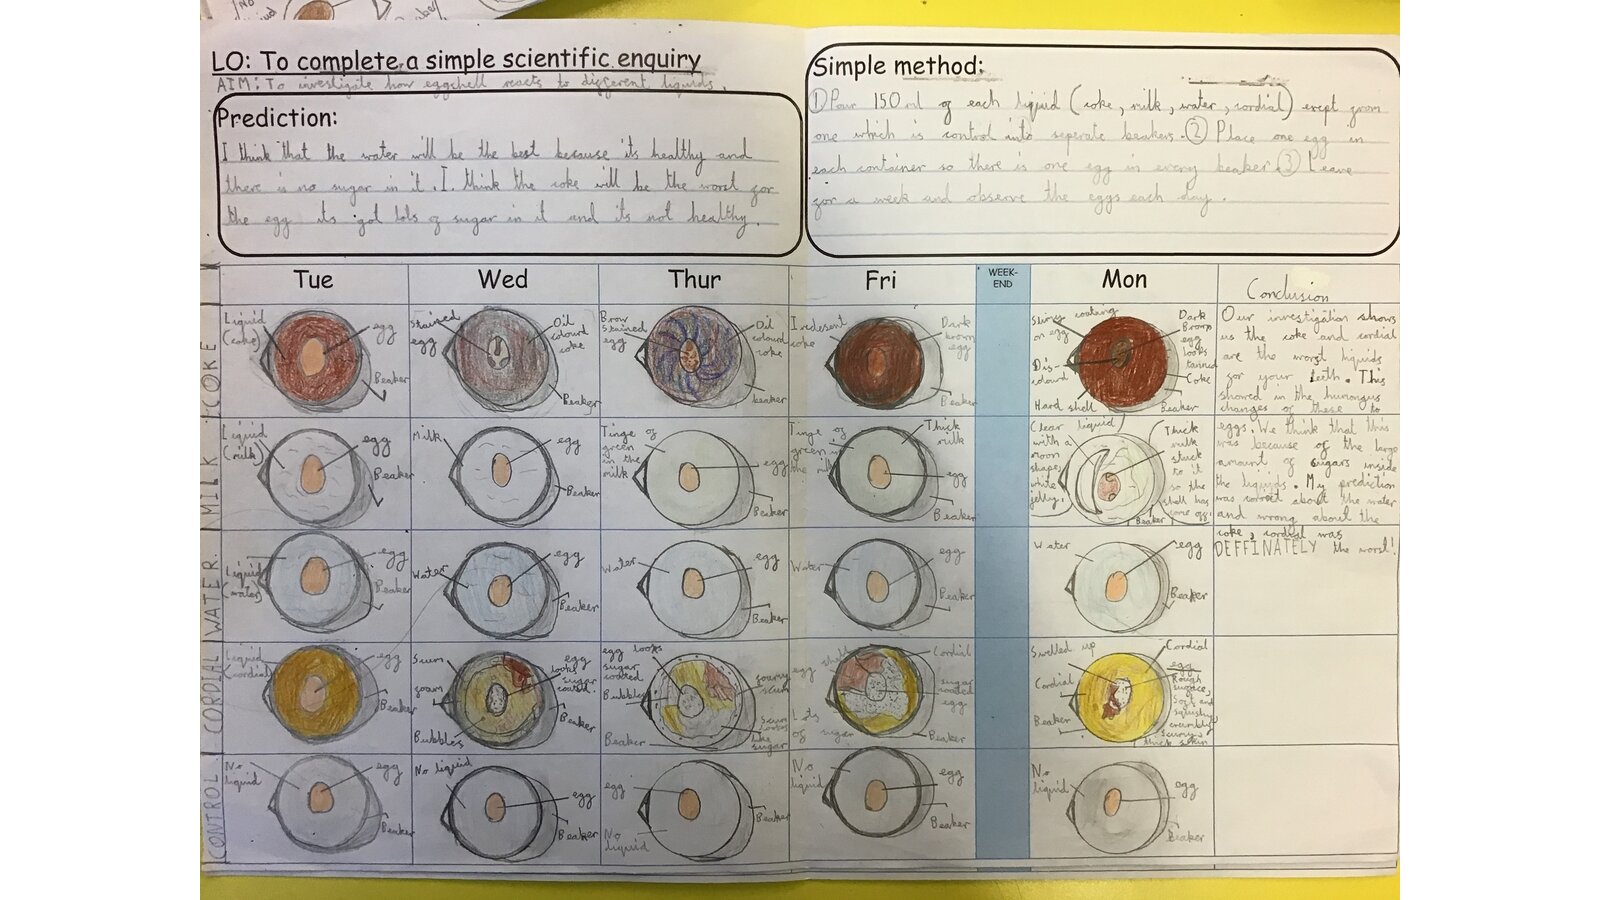 LO: To complete a simple scientific enquiry
AIM: To investigate how eggshell reacts to different liquids.
Prediction:
I think that the water will be the best because its healthy and
there is no sugar in it. I think the coke will be the worst for
the egg its got lots of sugar in it and its not healthy.
Simple method:
① Pour 150ml of each liquid (coke, milk, water, cordial) exept from
one which is control into seperate beakers. ② Place one egg in
each container so there is one egg in every beaker. ③ Leave
for a week and observe the eggs each day.
Tue
Wed
Thur
Fri
WEEK-
END
Mon
Conclusion
COKE
Liquid
(coke)
egg
Beaker
Stained
egg
Oil
colourd
coke
Beaker
Brow
stained
egg
Oil
colourd
coke
beaker
Iredesent
coke
Dark
brown
egg
Beaker
Slimy coating
on egg
Dis-
colourd
Hard shell
Dark
Brown
egg
looks
tanned
Coke
Beaker
Our investigation shows
us the coke and cordial
are the worst liquids
for your teeth. This
showed in the humongus
changes of these to
eggs. We think that this
was because of the large
amount of sugars inside
the liquids. My prediction
was correct about the water
and wrong about the
coke, cordial was
DEFFINATELY the worst!
MILK
Liquid
(milk)
egg
Beaker
Milk
egg
Beaker
Tinge of
green
in the
milk
egg
Beaker
Tinge of
green in
the milk
Thick
milk
egg
Beaker
Clear liquid
with a
moon
shape
white
jelly.
Thick
milk
stuck
to it
so the
shell has
come off
Beaker
WATER
Liquid
(water)
egg
Beaker
Water
egg
Beaker
Water
egg
Beaker
Water
egg
Beaker
Water
egg
Beaker
CORDIAL
Liquid
(cordial)
egg
Beaker
Scum
foam
Bubbles
egg
looks
sugar
coated.
Beaker
egg looks
sugar
coated
Bubbles
Beaker
foamy
scum
Scum
looks
like
sugar
egg shell
Lots
of sugar
Cordial
sugar
coated
egg
Beaker
Swelled up
Cordial
Beaker
Cordial
egg
Rough
surface,
Soft and
squishy
crumbly
Scummy
thick skin
CONTROL
No
liquid
egg
Beaker
No liquid
egg
Beaker
egg
No
liquid
Beaker
No
liquid
egg
Beaker
No
liquid
egg
Beaker